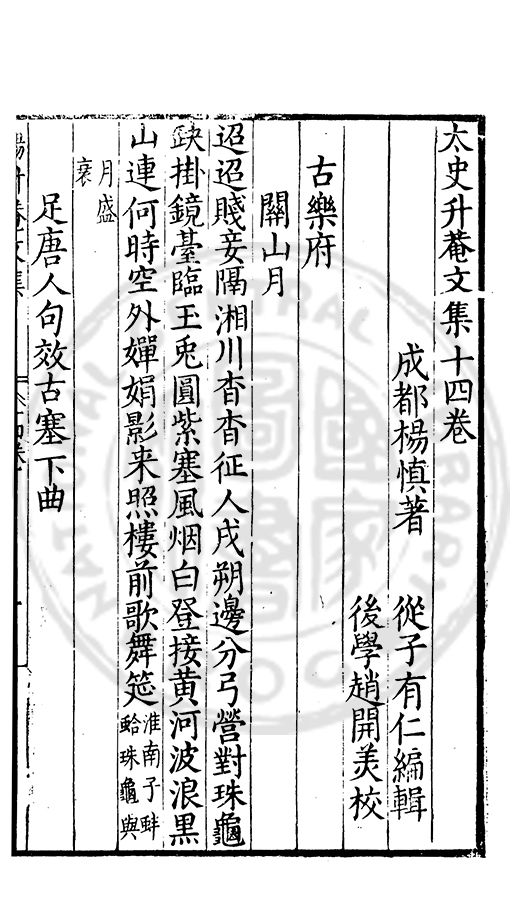 太史升菴文集十四卷
成都楊慎著 從子有仁編輯
後學趙開美校
古樂府
關山月
迢迢賤妾隔湘川杳杳征人戍朔邊分弓營對珠龜
缺掛鏡臺臨玉兎圓紫塞風烟白登接黃河波浪黒
山連何時空外嬋娟影来照樓前歌舞筵淮南子蚌
蛤珠龜與
月盛
衰
足唐人句效古塞下曲